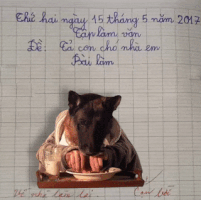 Thứ hai ngày 15 tháng 5 năm 2017
Tập làm văn
Đề: Tả con chó nhà em
Bài làm
Về nhà làm lại.